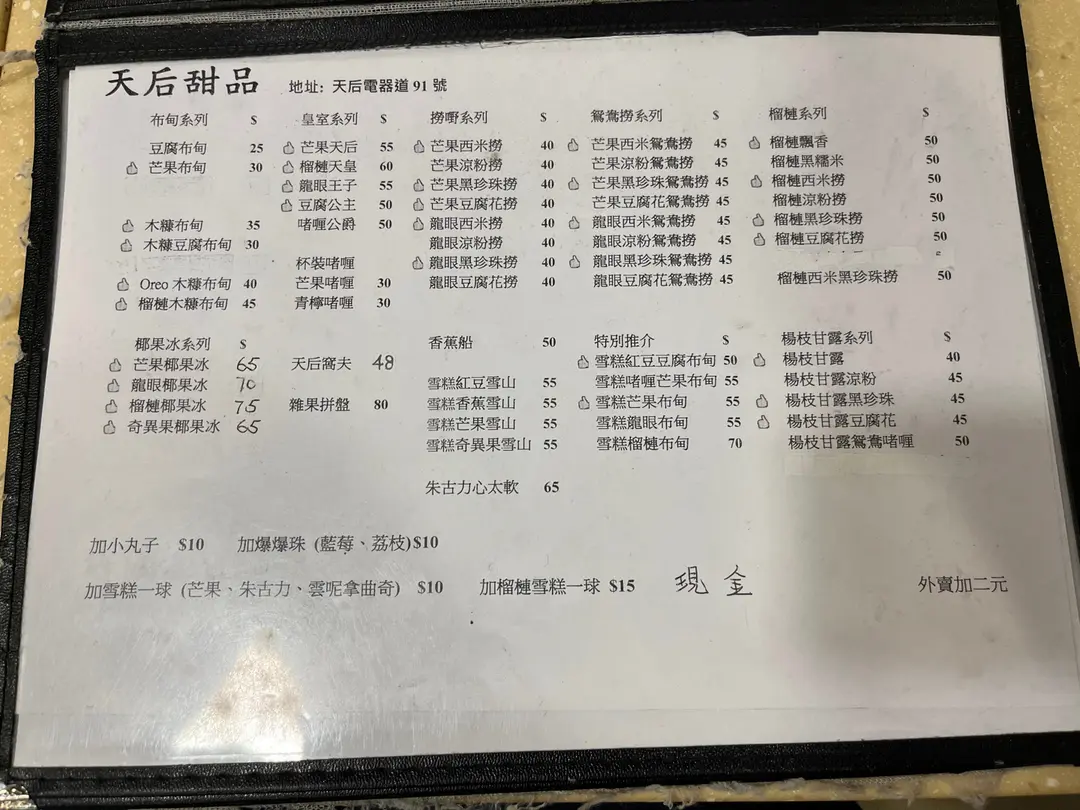 天后甜品 地址: 天后電器道 91 號
布甸系列 $
豆腐布甸 25
芒果布甸 30
木糠布甸 35
木糠豆腐布甸 30
Oreo 木糠布甸 40
榴槤木糠布甸 45
皇室系列 $
芒果天后 55
榴槤天皇 60
龍眼王子 55
豆腐公主 50
啫喱公爵 50
杯裝啫喱
芒果啫喱 30
青檸啫喱 30
撈嘢系列 $
芒果西米撈 40
芒果涼粉撈 40
芒果黑珍珠撈 40
芒果豆腐花撈 40
龍眼西米撈 40
龍眼涼粉撈 40
龍眼黑珍珠撈 40
龍眼豆腐花撈 40
鴛鴦撈系列 $
芒果西米鴛鴦撈 45
芒果涼粉鴛鴦撈 45
芒果黑珍珠鴛鴦撈 45
芒果豆腐花鴛鴦撈 45
龍眼西米鴛鴦撈 45
龍眼涼粉鴛鴦撈 45
龍眼黑珍珠鴛鴦撈 45
龍眼豆腐花鴛鴦撈 45
榴槤系列 $
榴槤飄香 50
榴槤黑糯米 50
榴槤西米撈 50
榴槤涼粉撈 50
榴槤黑珍珠撈 50
榴槤豆腐花撈 50
榴槤西米黑珍珠撈 50
椰果冰系列 $
芒果椰果冰 65
龍眼椰果冰 70
榴槤椰果冰 75
奇異果椰果冰 65
天后窩夫 48
雜果拼盤 80
香蕉船 50
雪糕紅豆雪山 55
雪糕香蕉雪山 55
雪糕芒果雪山 55
雪糕奇異果雪山 55
朱古力心太軟 65
特別推介 $
雪糕紅豆豆腐布甸 50
雪糕啫喱芒果布甸 55
雪糕芒果布甸 55
雪糕龍眼布甸 55
雪糕榴槤布甸 70
楊枝甘露系列 $
楊枝甘露 40
楊枝甘露涼粉 45
楊枝甘露黑珍珠 45
楊枝甘露豆腐花 45
楊枝甘露鴛鴦啫喱 50
加小丸子 $10 加爆爆珠 (藍莓、荔枝)$10
加雪糕一球 (芒果、朱古力、雲呢拿曲奇) $10 加榴槤雪糕一球 $15 現金 外賣加二元